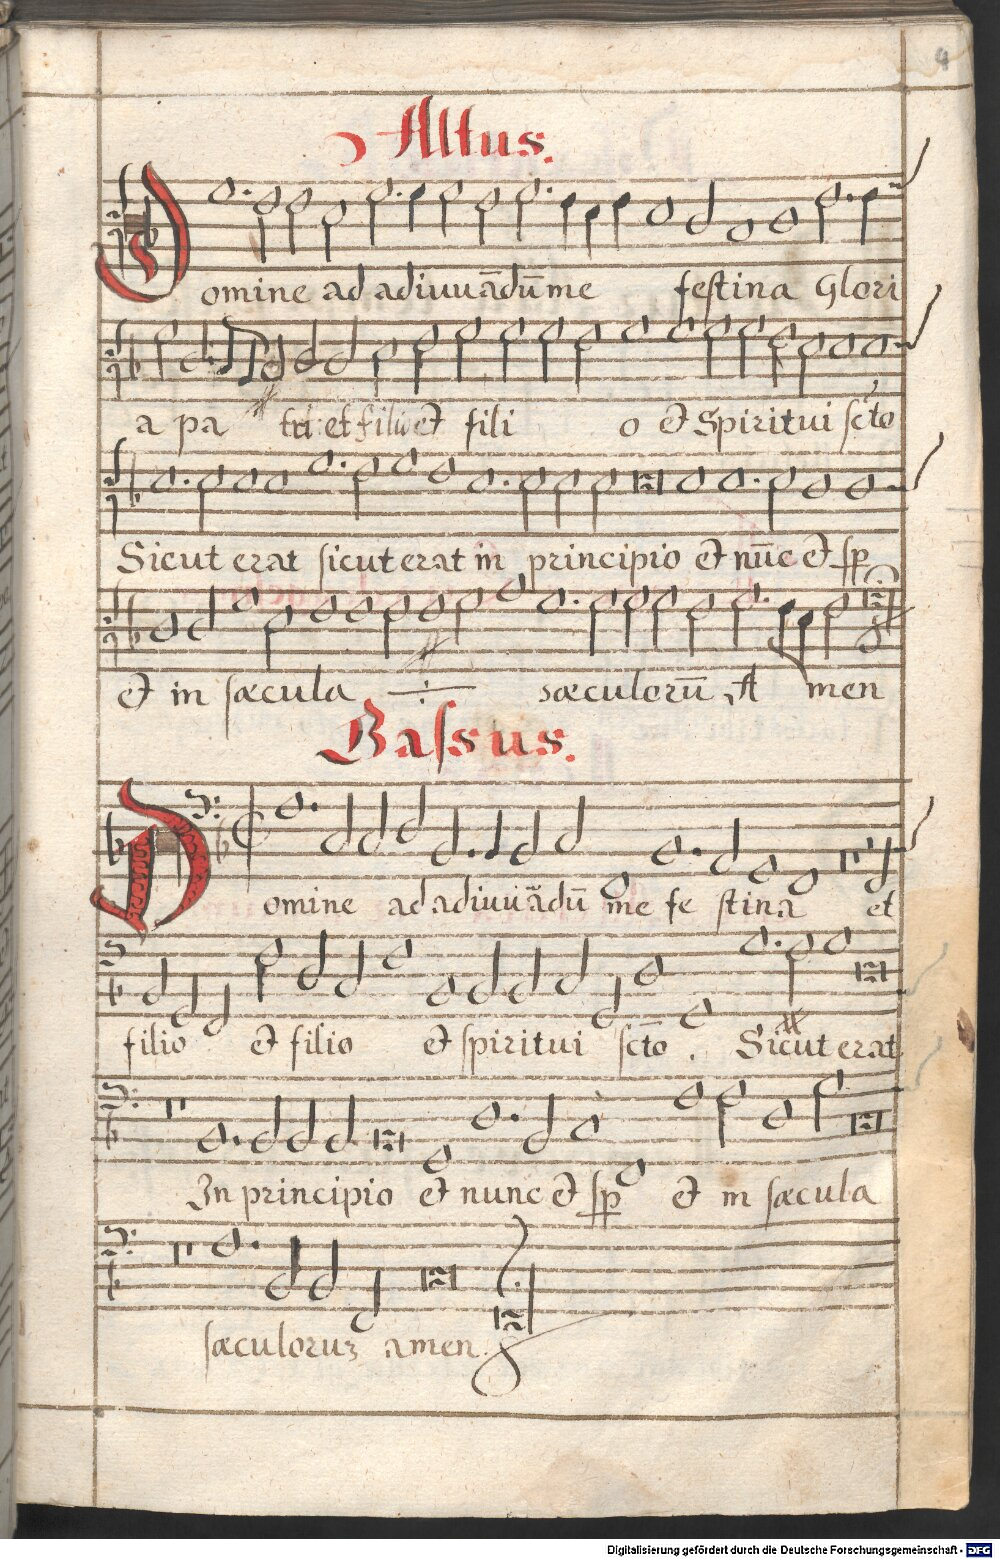 4
Altus.
Domine ad adiuvādū me festina Glori
a pa tri et filio et fili o et Spiritui scto
Sicut erat sicut erat in principio et nūc et sp
et in sæcula ·/· sæculorū A men
Bassus.
Domine ad adiuvādū me festina et
filio et filio et spiritui scto. Sicut erat
In principio et nunc et sp et in sæcula
sæculoruz amen.
Digitalisierung gefördert durch die Deutsche Forschungsgemeinschaft - DFG